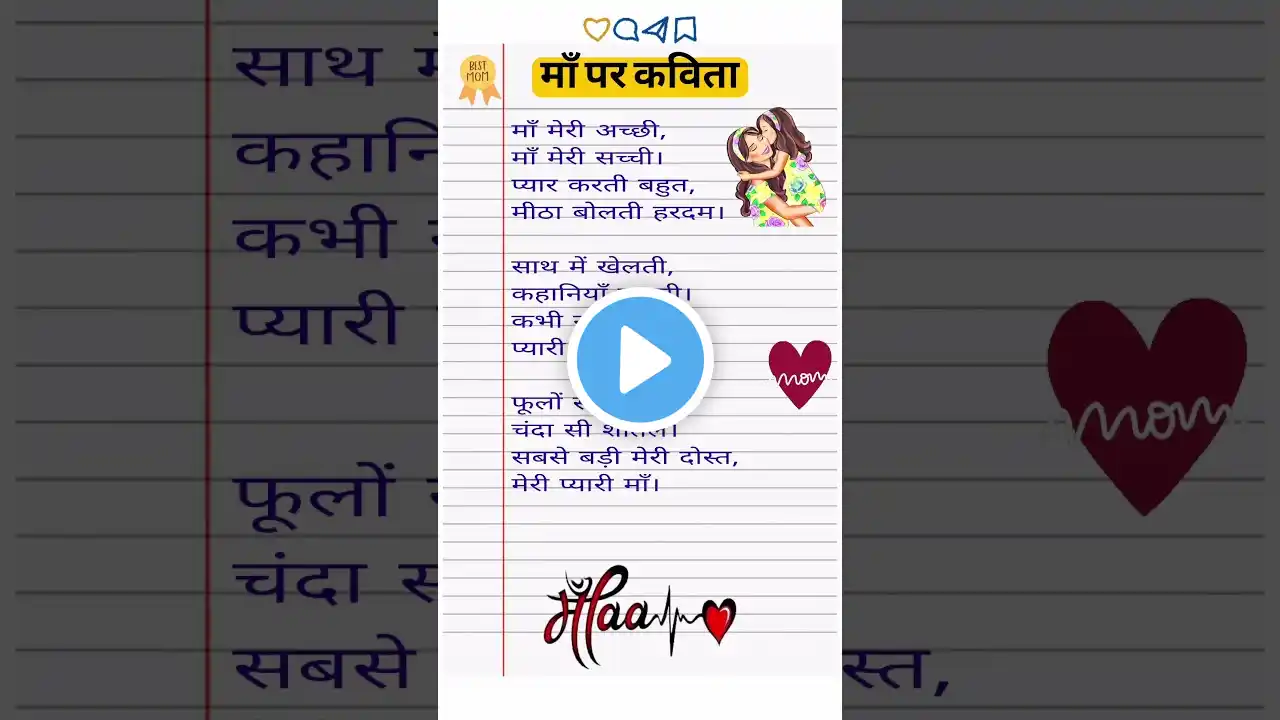 BEST
MOM
माँ पर कविता
माँ मेरी अच्छी,
माँ मेरी सच्ची।
प्यार करती बहुत,
मीठा बोलती हरदम।
साथ में खेलती,
कहानियाँ
कभी
प्यारी
फूलों
चंदा सी शीतल।
सबसे बड़ी मेरी दोस्त,
मेरी प्यारी माँ।
mom
माँ Maa
साथ
कहानि
कभी
प्यारी
फूलों
चंदा स
सबसे
स्त,
mom